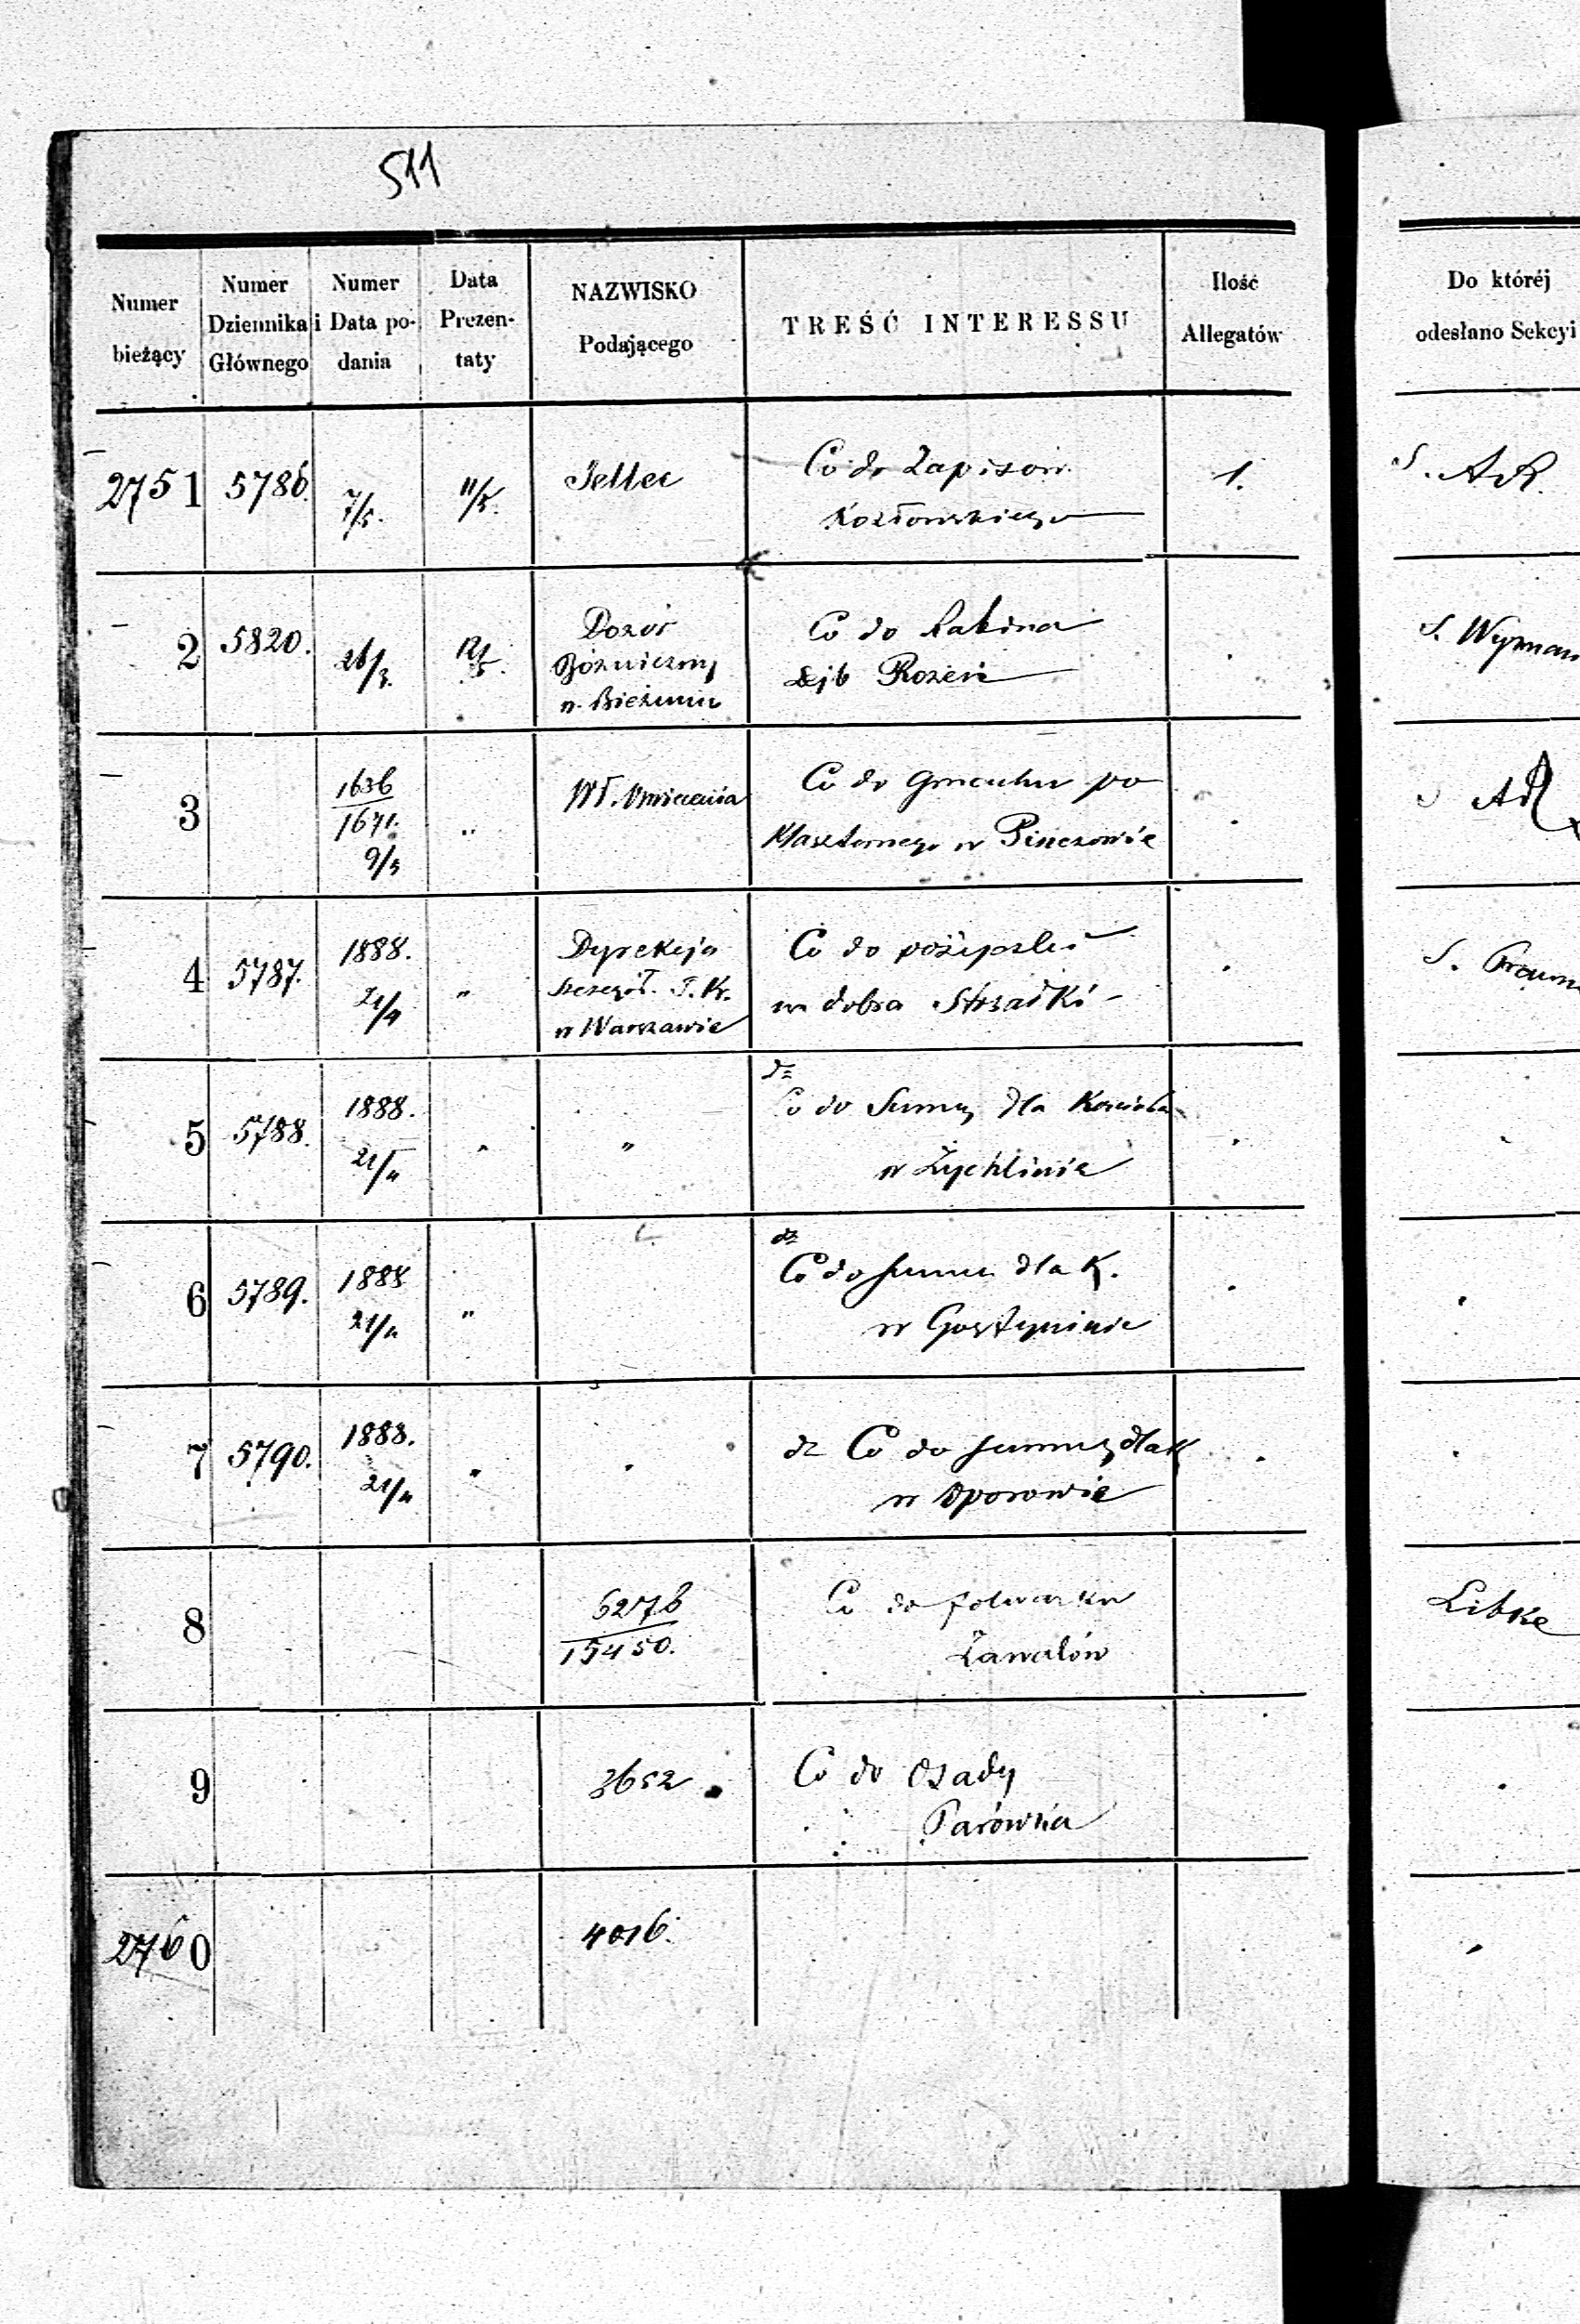 511
Numer bieżący
Numer Dziennika Głównego
Numer i Data podania
Data Prezentaty
NAZWISKO Podającego
TREŚĆ INTERESSU
Ilość Allegatów
Do któréj odesłano Sekcyi
2751 5786. 7/5. 11/5. Co do Zapisow 1.
Kozłowskiego
2 5820. 26/3. 12/5. Dozór Co do Rabina
Bóżniczny Lejb Rozen
w Bieżuniu
3 1636 Co do gmachu po
1671. Klasztornego w Pinczowie
9/5
4 5787. 1888. Dyrekcja Co do pożyczki
21/4 " Szczegół. T. Kr. na dobra
w Warszawie
5 5788. 1888. dz
Co do Sumy dla Kościoła
21/4 " w Żychlinie
6 5789. 1888 dz
Co do sumy dla K.
21/4 " w Gostyninie
7 5790. 1888. dz Co do sumy dla K
21/4 " w Oporowie
8 6276 Co do folwarku Libke
15450. Zawalów
9 3652 Co do Osady
Parówka
2760 4016.